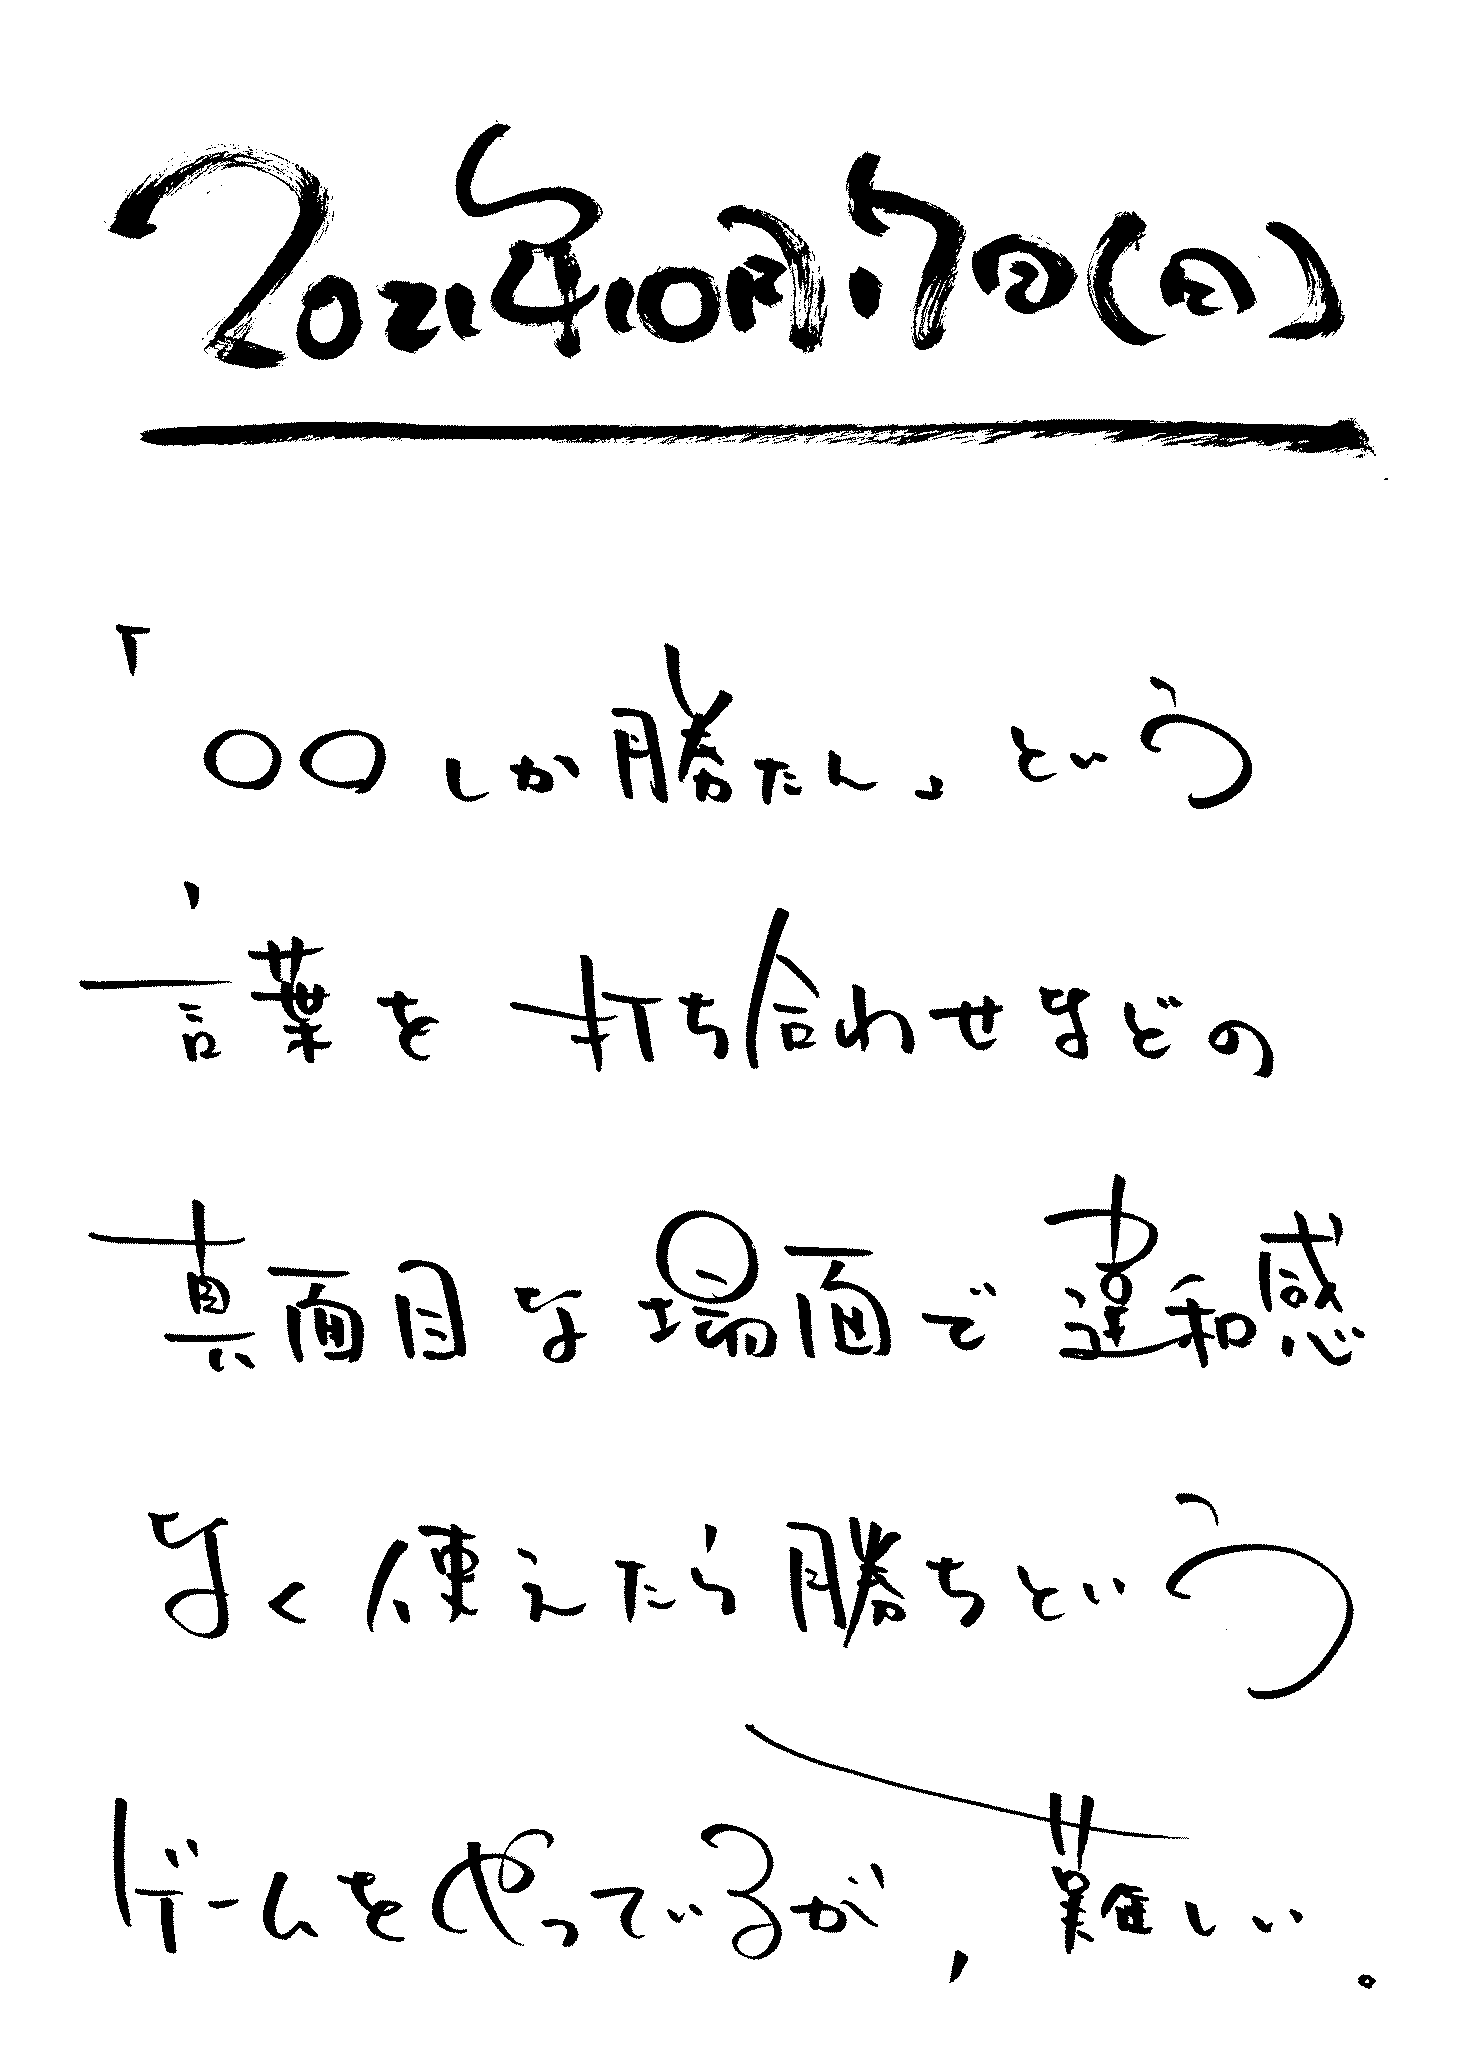 2021年10月17日(日)
「○○しか勝たん」という
言葉を打ち合わせなどの
真面目な場面で違和感
なく使えたら勝ちという
ゲームをやっているが、難しい。